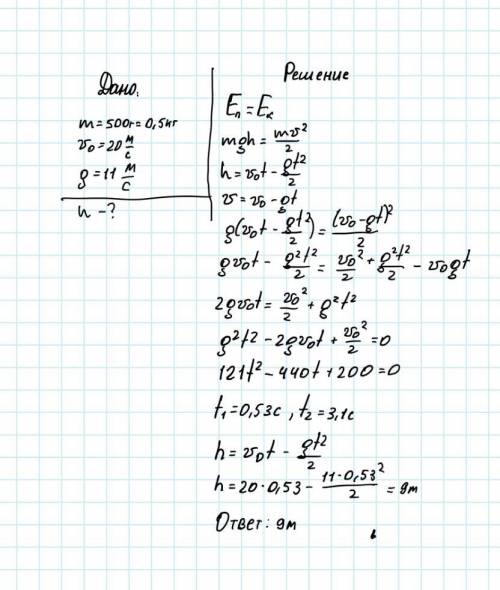 Дано:
m = 500г = 0,5кг
v₀ = 20 м/с
g = 11 м/с
h - ?
Решение
Eп = Eк
mgh = mv²/2
h = v₀t - gt²/2
v = v₀ - gt
g(v₀t - gt²/2) = (v₀ - gt)²/2
gv₀t - g²t²/2 = v₀²/2 + g²t²/2 - v₀gt
2gv₀t = v₀²/2 + g²t²
g²t² - 2gv₀t + v₀²/2 = 0
121t² - 440t + 200 = 0
t₁ = 0,53с , t₂ = 3,1с
h = v₀t - gt²/2
h = 20·0,53 - 11·0,53²/2 = 9м
Ответ: 9м